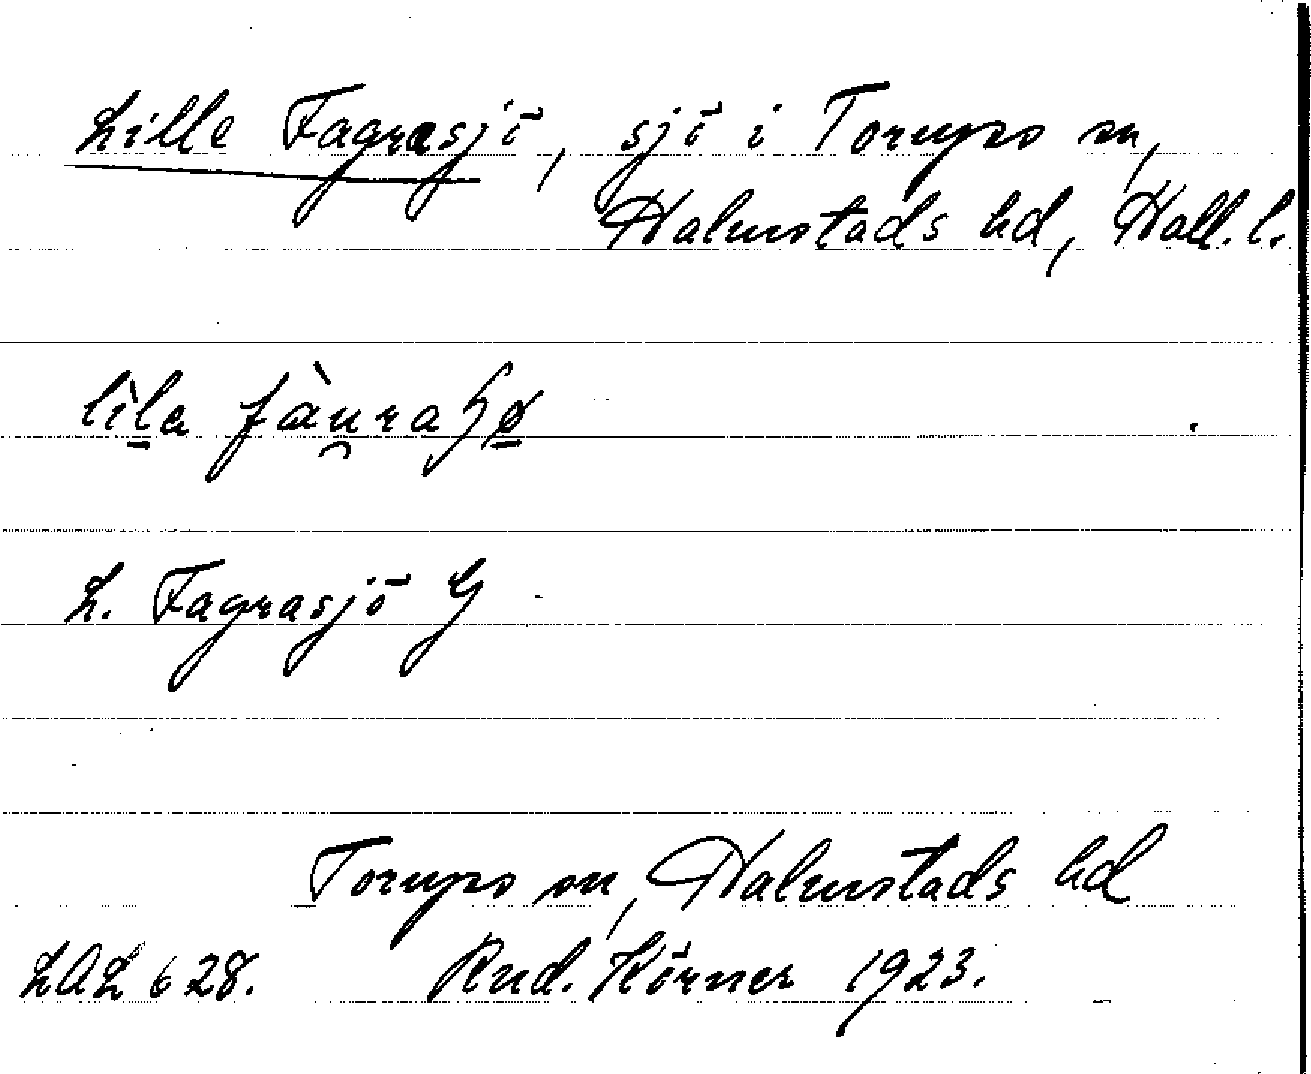 Lille Fagrasjö, sjö i Torups sn,
Halmstads hd, Hall. l.
lìla fàu̯raꞩø
L. Fagrasjö G
Torups sn, Halmstads hd
LAL 628. Rud. Körner 1923.